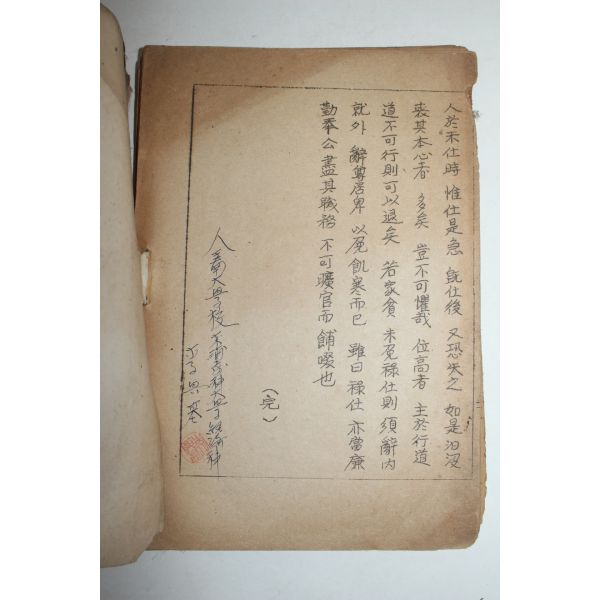 人於未仕時 惟仕是急 旣仕後 又恐失之 如是汩沒
喪其本心者 多矣 豈不可懼哉 位高者 主於行道
道不可行則可以退矣 若家貧 未免祿仕則須辭內
就外 辭尊居卑 以免飢寒而已 雖曰祿仕 亦當廉
勤奉公 盡其職務 不可曠官而餔啜也
(完)
大學校